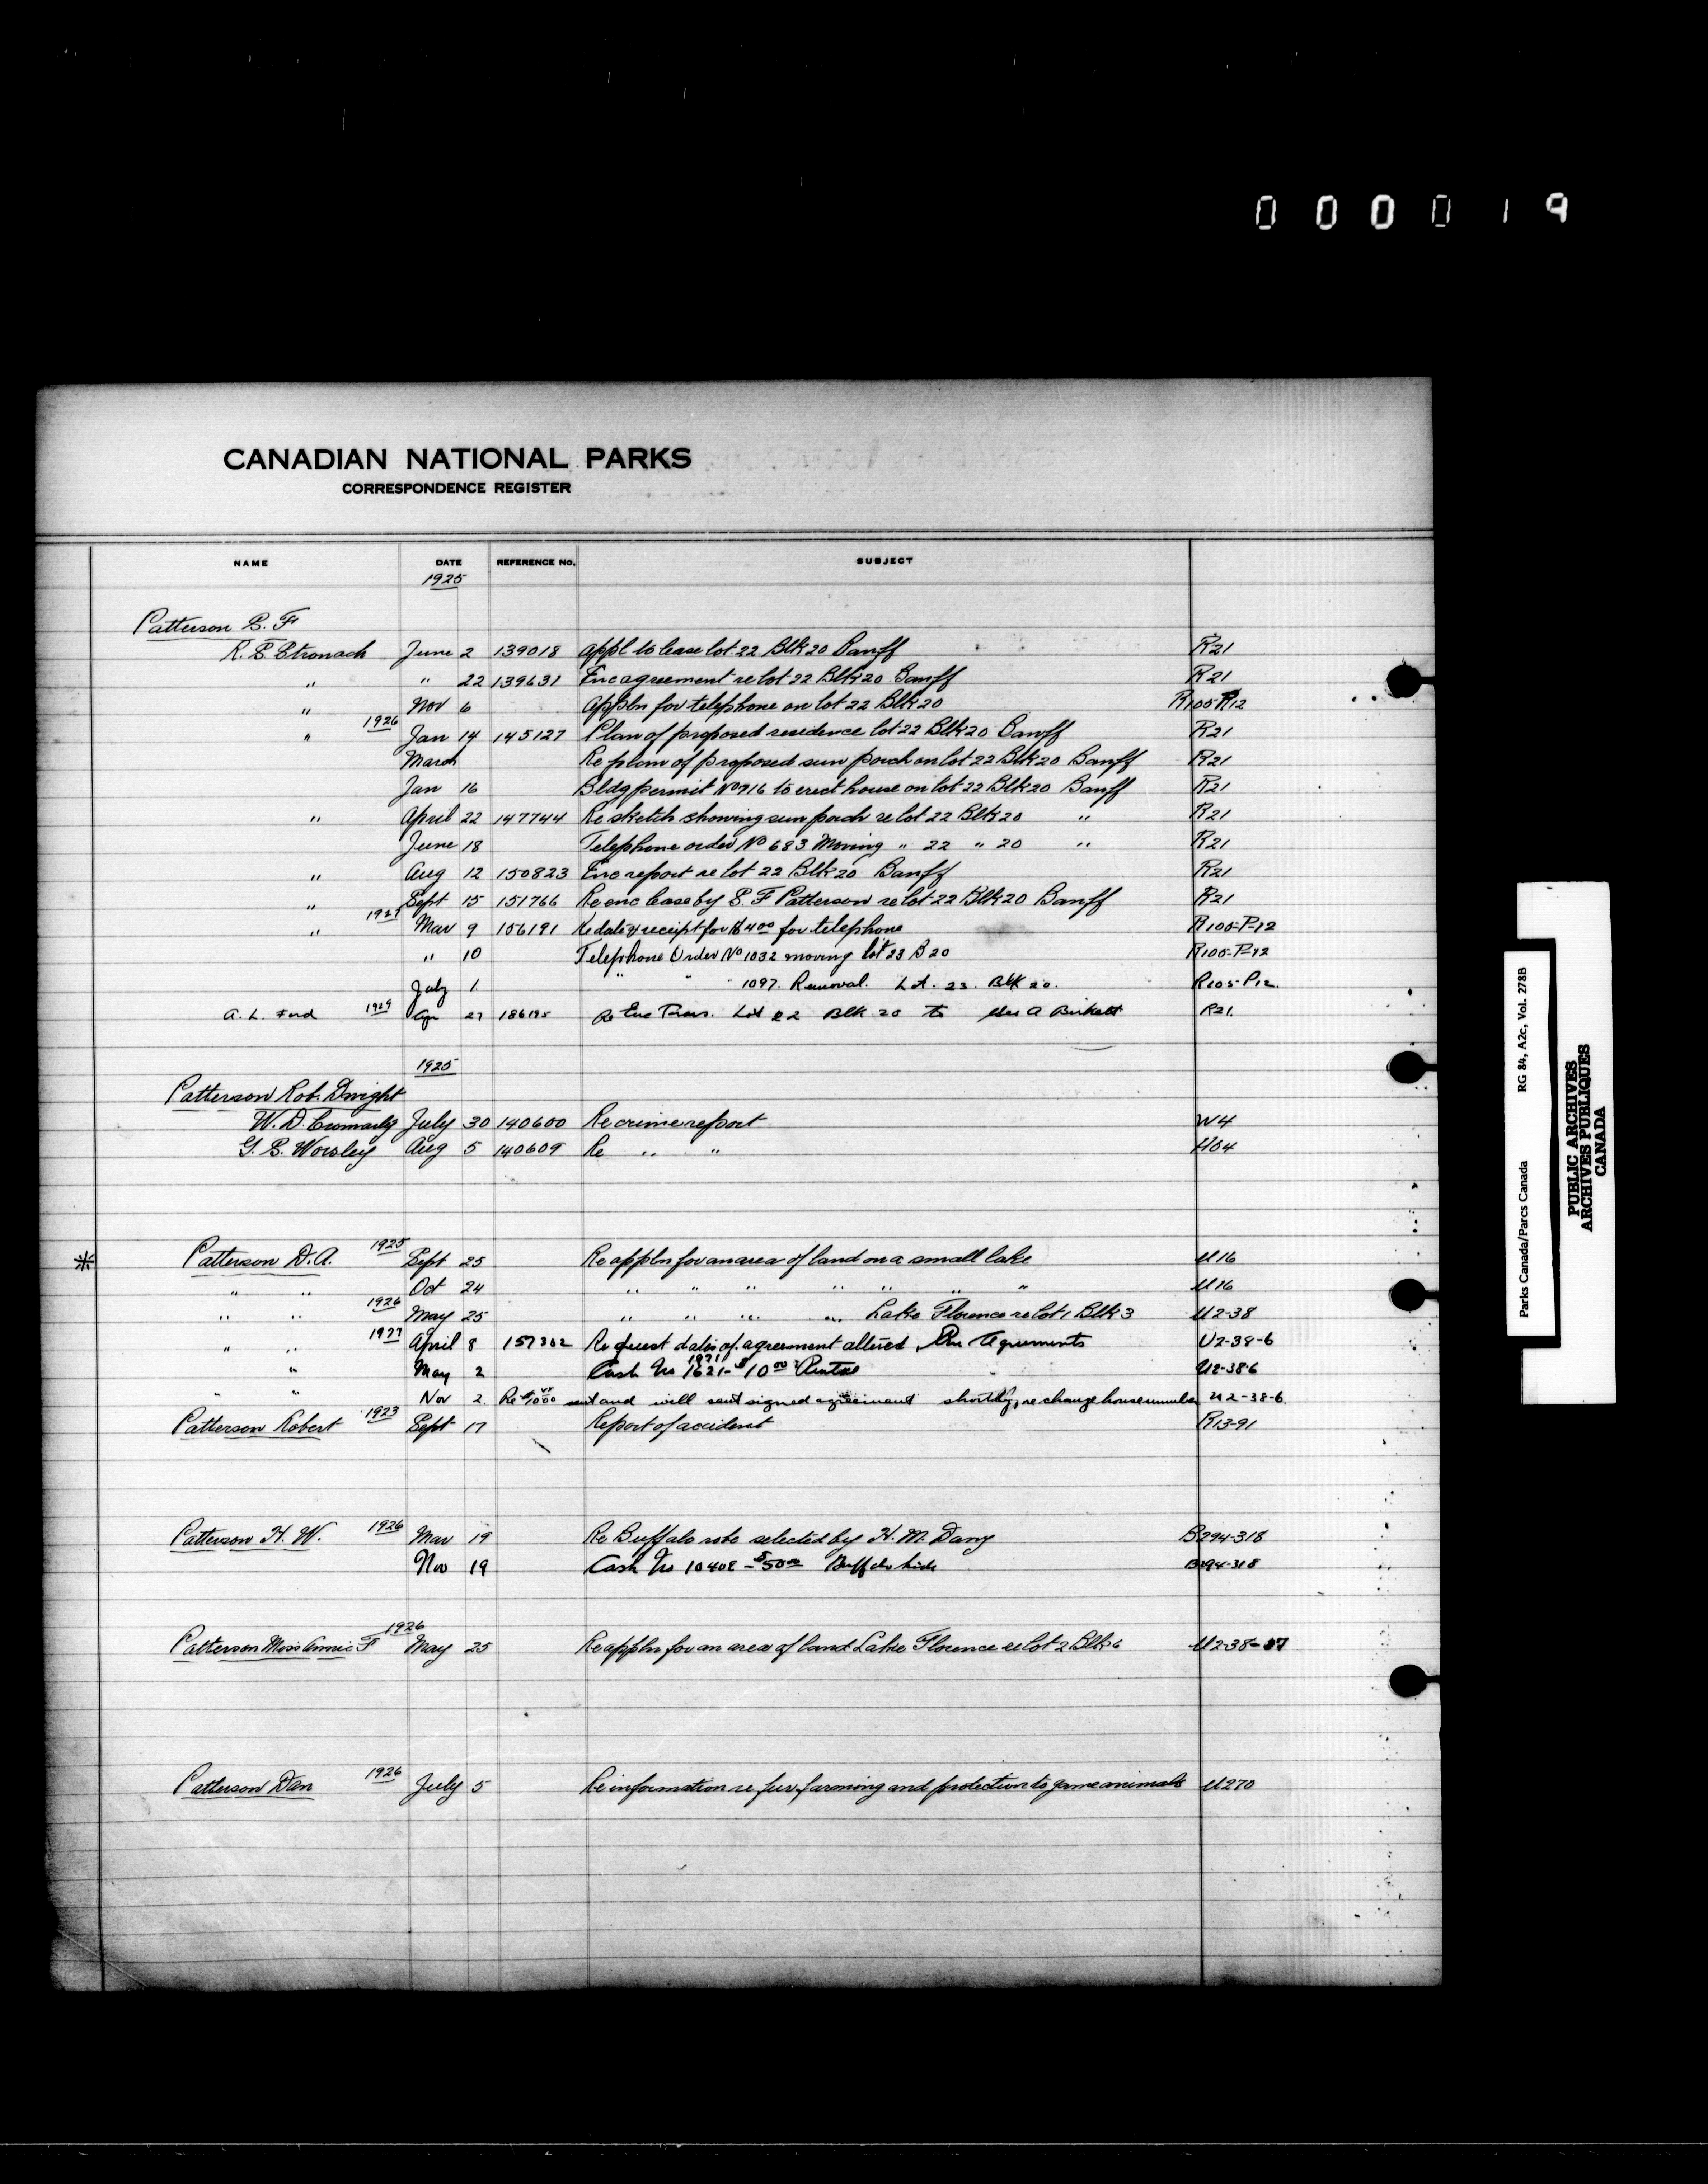 0 0 0 0 1 9
CANADIAN NATIONAL PARKS
CORRESPONDENCE REGISTER
NAME DATE REFERENCE NO. SUBJECT
1925
Patterson S. F
R. S Stronach June 2 139018 Appl to lease lot 22 Blk 20 Banff R21
" " 22 139631 Enc agreement re lot 22 Blk 20 Banff R21
" Nov 6 Appln for telephone on lot 22 Blk 20 R105-P12
" 1926 Jan 14 145127 Plan of proposed residence lot 22 Blk 20 Banff R21
March Re plan of proposed sun porch on lot 22 Blk 20 Banff R21
Jan 16 Bldg permit No 916 to erect house on lot 22 Blk 20 Banff R21
" April 22 147744 Re sketch showing sun porch re lot 22 Blk 20 " R21
June 18 Telephone order No 683 Moving " 22 " 20 " R21
" Aug 12 150823 Enc report re lot 22 Blk 20 Banff R21
" Sept 15 151766 Re enc lease by S. F Patterson re lot 22 Blk 20 Banff R21
" 1927 Mar 9 156191 Re date & receipt for $4.00 for telephone R105-P12
" 10 Telephone Order No 1032 moving lot 23 B 20 R105-P12
July 1. " " 1097. Removal. Lot. 23. Blk 20. R105-P12.
A. L. Ford 1929 Apr 27 186195 Re Enc Trans. Lot 22 Blk 20 to Mrs A Birkett R21.
1925
Patterson Rob. Dwight
W. D. Cromarty July 30 140600 Re crime report W4
G. B. Worsley Aug 5 140609 Re " " H04
* Patterson D. A. 1925 Sept 25 Re appln for an area of land on a small lake U16
" " Oct 24 " " " " " " " U16
" " 1926 May 25 " " " " Lake Florence re lot 1 Blk 3 U2-38
" " 1927 April 8 157302 Request dates of agreement altered, Agreements U2-38-6
" May 2 Cash No 1621- $10.00 Rental U2-38-6
1971
" " Nov 2 Re $10.00 sent and will sent signed agreement shortly, re change house number U2-38-6
Patterson Robert 1923 Sept 17 Report of accident R13-91
Patterson H. W. 1926 Mar 19 Re Buffalo robe selected by H. M. B294-318
Nov 19 Cash No 10408 - $50.00 Buffalo hide B294-318
Patterson Miss Annie F 1926 May 25 Re appln for an area of land Lake Florence re lot 2 Blk 6 U2-38-37
Patterson Dan 1926 July 5 Re information re fur farming and protection to game animals U270
Parks Canada/Parcs Canada RG 84, A2c, Vol. 278B
PUBLIC ARCHIVES
ARCHIVES PUBLIQUES
CANADA